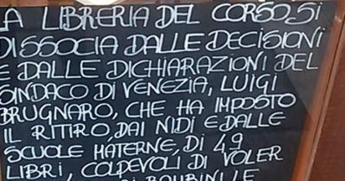 LA LIBRERIA DEL CORSO SI
DISSOCIA DALLE DECISIONI
E DALLE DICHIARAZIONI DEL
SINDACO DI VENEZIA, LUIGI
BRUGNARO, CHE HA IMPOSTO
IL RITIRO DAI NIDI E DALLE
SCUOLE MATERNE, DI 49
LIBRI, COLPEVOLI DI VOLER
BAMBINI LE